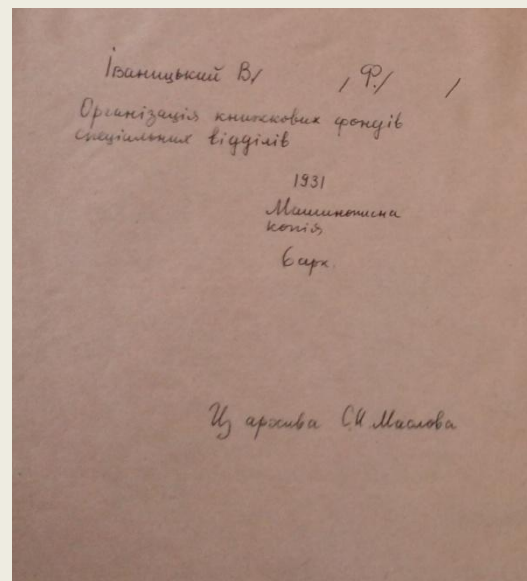 Іваницький В/ / Ф./ /
Організація книжкових фондів
спеціальних відділів
1931
Машинописна
копія
6 арк.
Из архива С.И. Маслова